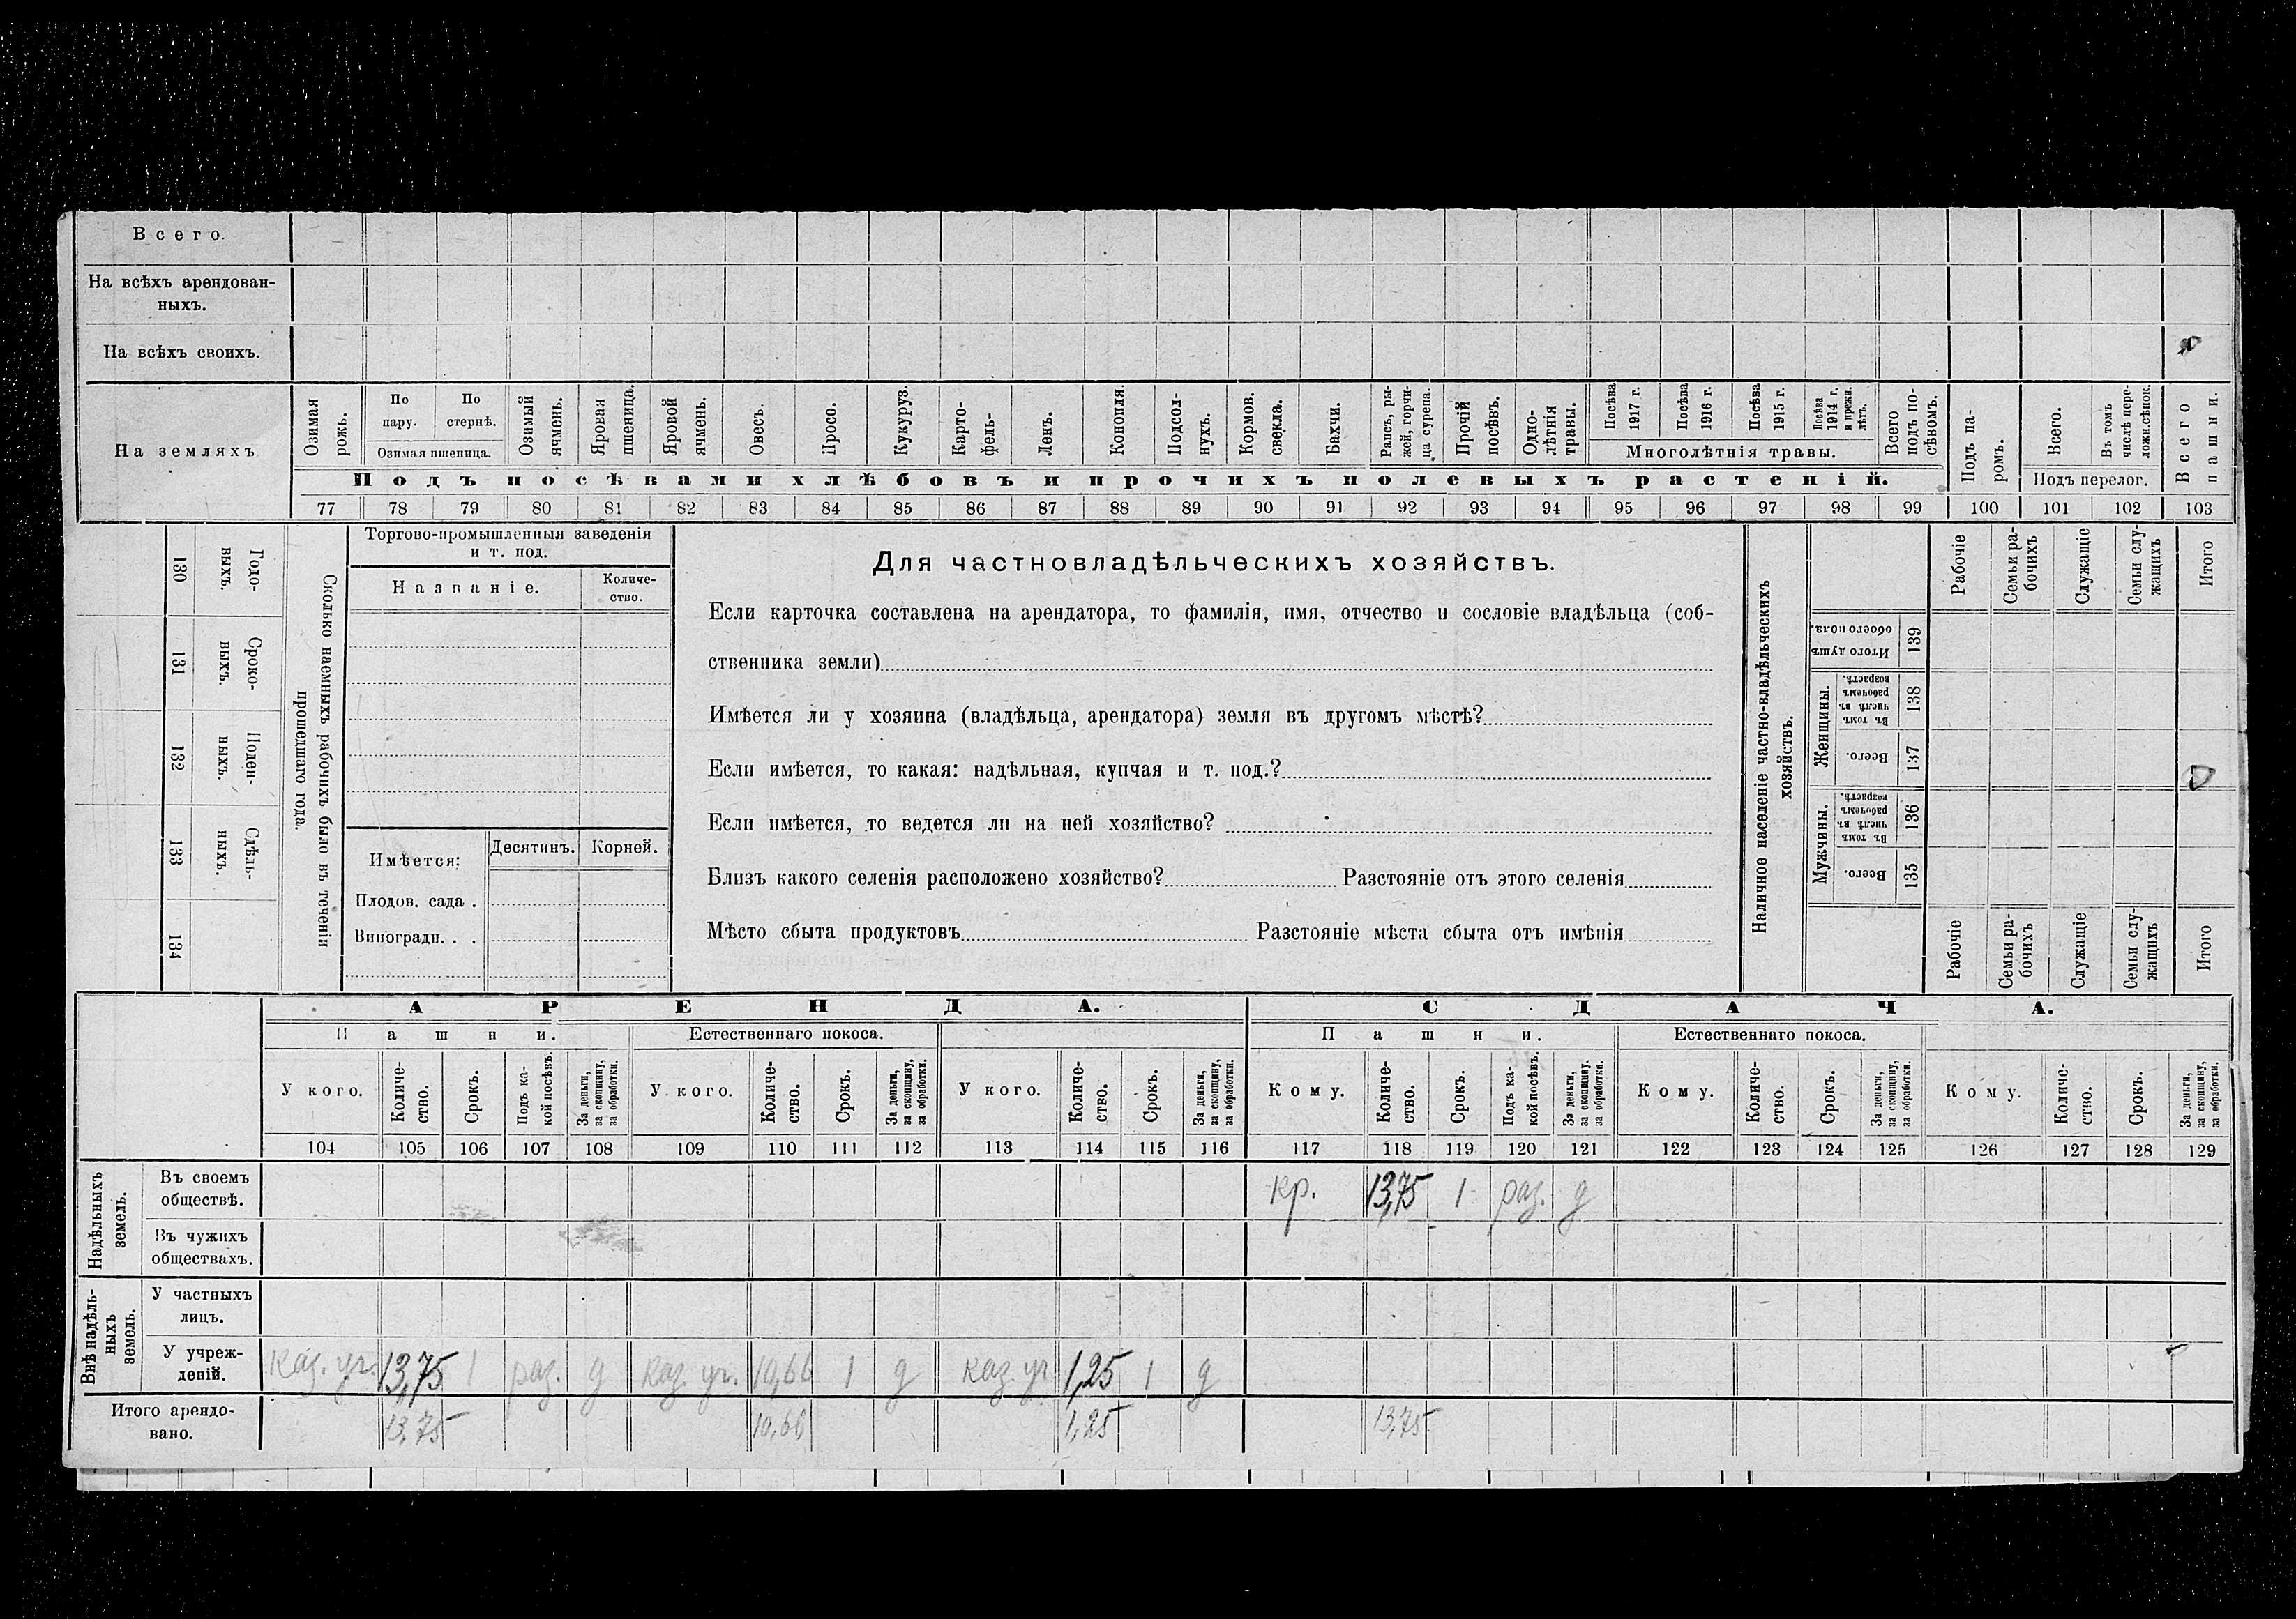 Всего.
На всѣхъ арендован-
ныхъ.
На всѣхъ своихъ.
На земляхъ
Озимая рожь.
По пару.
По стернѣ.
Озимая пшеница.
Озимый ячмень.
Яровая пшеница.
Яровой ячмень.
Овесъ.
Просо.
Кукуруз.
Карто-
фель-
Ленъ.
Конопля.
Подсол-
нухъ.
Кормов.
свекла.
Бахчи.
Рапсъ, ры-
жей, горчи-
ца сурепа.
Прочій
посѣвъ.
Одно-
лѣтнія
травы.
Посѣва 1917 г.
Посѣва 1916 г.
Посѣва 1915 г.
Посѣва 1914 г. и прежн. лѣтъ.
Многолѣтнія травы.
Всего
подъ по-
сѣвомъ.
Подъ па-
ромъ.
Всего.
Въ томъ
числѣ пере-
ложн. сѣнок.
Подъ перелог.
Всего пашни.
Подъ посѣвами хлѣбовъ и прочихъ полевыхъ растеній.
77 78 79 80 81 82 83 84 85 86 87 88 89 90 91 92 93 94 95 96 97 98 99 100 101 102 103
130 Годо-
выхъ.
131 Сроко-
выхъ.
132 Поден-
ныхъ.
133 Сдѣль-
ныхъ.
134
Сколько наемныхъ рабочихъ было въ теченіи
прошедшаго года.
Торгово-промышленныя заведенія
и т. под.
Названіе.
Количе-
ство.
Имѣется:
Десятинъ.
Корней.
Плодов. сада .
Виноградн. . .
Для частновладѣльческихъ хозяйствъ.
Если карточка составлена на арендатора, то фамилія, имя, отчество и сословіе владѣльца (соб-
ственника земли)
Имѣется ли у хозяина (владѣльца, арендатора) земля въ другомъ мѣстѣ?
Если имѣется, то какая: надѣльная, купчая и т. под.?
Если имѣется, то ведется ли на ней хозяйство?
Близъ какого селенія расположено хозяйство? Разстояніе отъ этого селенія
Мѣсто сбыта продуктовъ Разстояніе мѣста сбыта отъ имѣнія
Наличное населеніе частно-владѣльческихъ
хозяйствъ.
Рабочіе
Семьи ра-
бочихъ
Служащіе
Семьи слу-
жащихъ
Итого
Итого душъ
обоего пола.
139
Женщины.
Въ томъ
числѣ въ
рабочемъ
возрастѣ.
138
Всего.
137
Мужчины.
Въ томъ
числѣ въ
рабочемъ
возрастѣ.
136
Всего.
135
Рабочіе
Семьи ра-
бочихъ
Служащіе
Семьи слу-
жащихъ
Итого
АРЕНДА.
СДАЧА.
Пашни.
Естественнаго покоса.
Пашни.
Естественнаго покоса.
У кого.
Количе-
ство.
Срокъ.
Подъ ка-
кой посѣвъ.
За деньги,
за скопщину,
за обработки.
У кого.
Количе-
ство.
Срокъ.
За деньги,
за скопщину,
за обработки.
У кого.
Количе-
ство.
Срокъ.
За деньги,
за скопщину,
за обработки.
Кому.
Количе-
ство.
Срокъ.
Подъ ка-
кой посѣвъ.
За деньги,
за скопщину,
за обработки.
Кому.
Количе-
ство.
Срокъ.
За деньги,
за скопщину,
за обработки.
Кому.
Количе-
ство.
Срокъ.
За деньги,
за скопщину,
за обработки.
104 105 106 107 108 109 110 111 112 113 114 115 116 117 118 119 120 121 122 123 124 125 126 127 128 129
Надѣльныхъ
земель.
Въ своемъ
обществѣ.
кр. 13,75 1 раз. д
Въ чужихъ
обществахъ.
Внѣ надѣль-
ныхъ
земель.
У частныхъ
лицъ.
У учреж-
деній.
каз. уч. 13,75 1 раз. д каз. уч. 10,66 1 д каз. уч 1,25 1 д
Итого арендо-
вано.
13,75 10,66 1,25 13,75